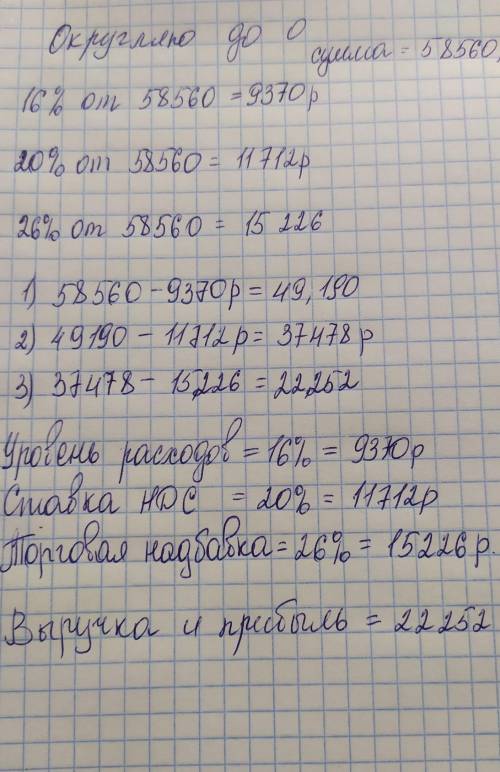 Округляно до 0
сумма = 58560,
16% от 58560 = 9370р
20% от 58560 = 11712р
26% от 58560 = 15 226
1) 58560 - 9370р = 49,190
2) 49190 - 11712р = 37478р
3) 37478 - 15,226 = 22,252
Уровень расходов = 16% = 9370р
Ставка НДС = 20% = 11712р
Торговая надбавка = 26% = 15226р.
Выручка и прибыль = 22252